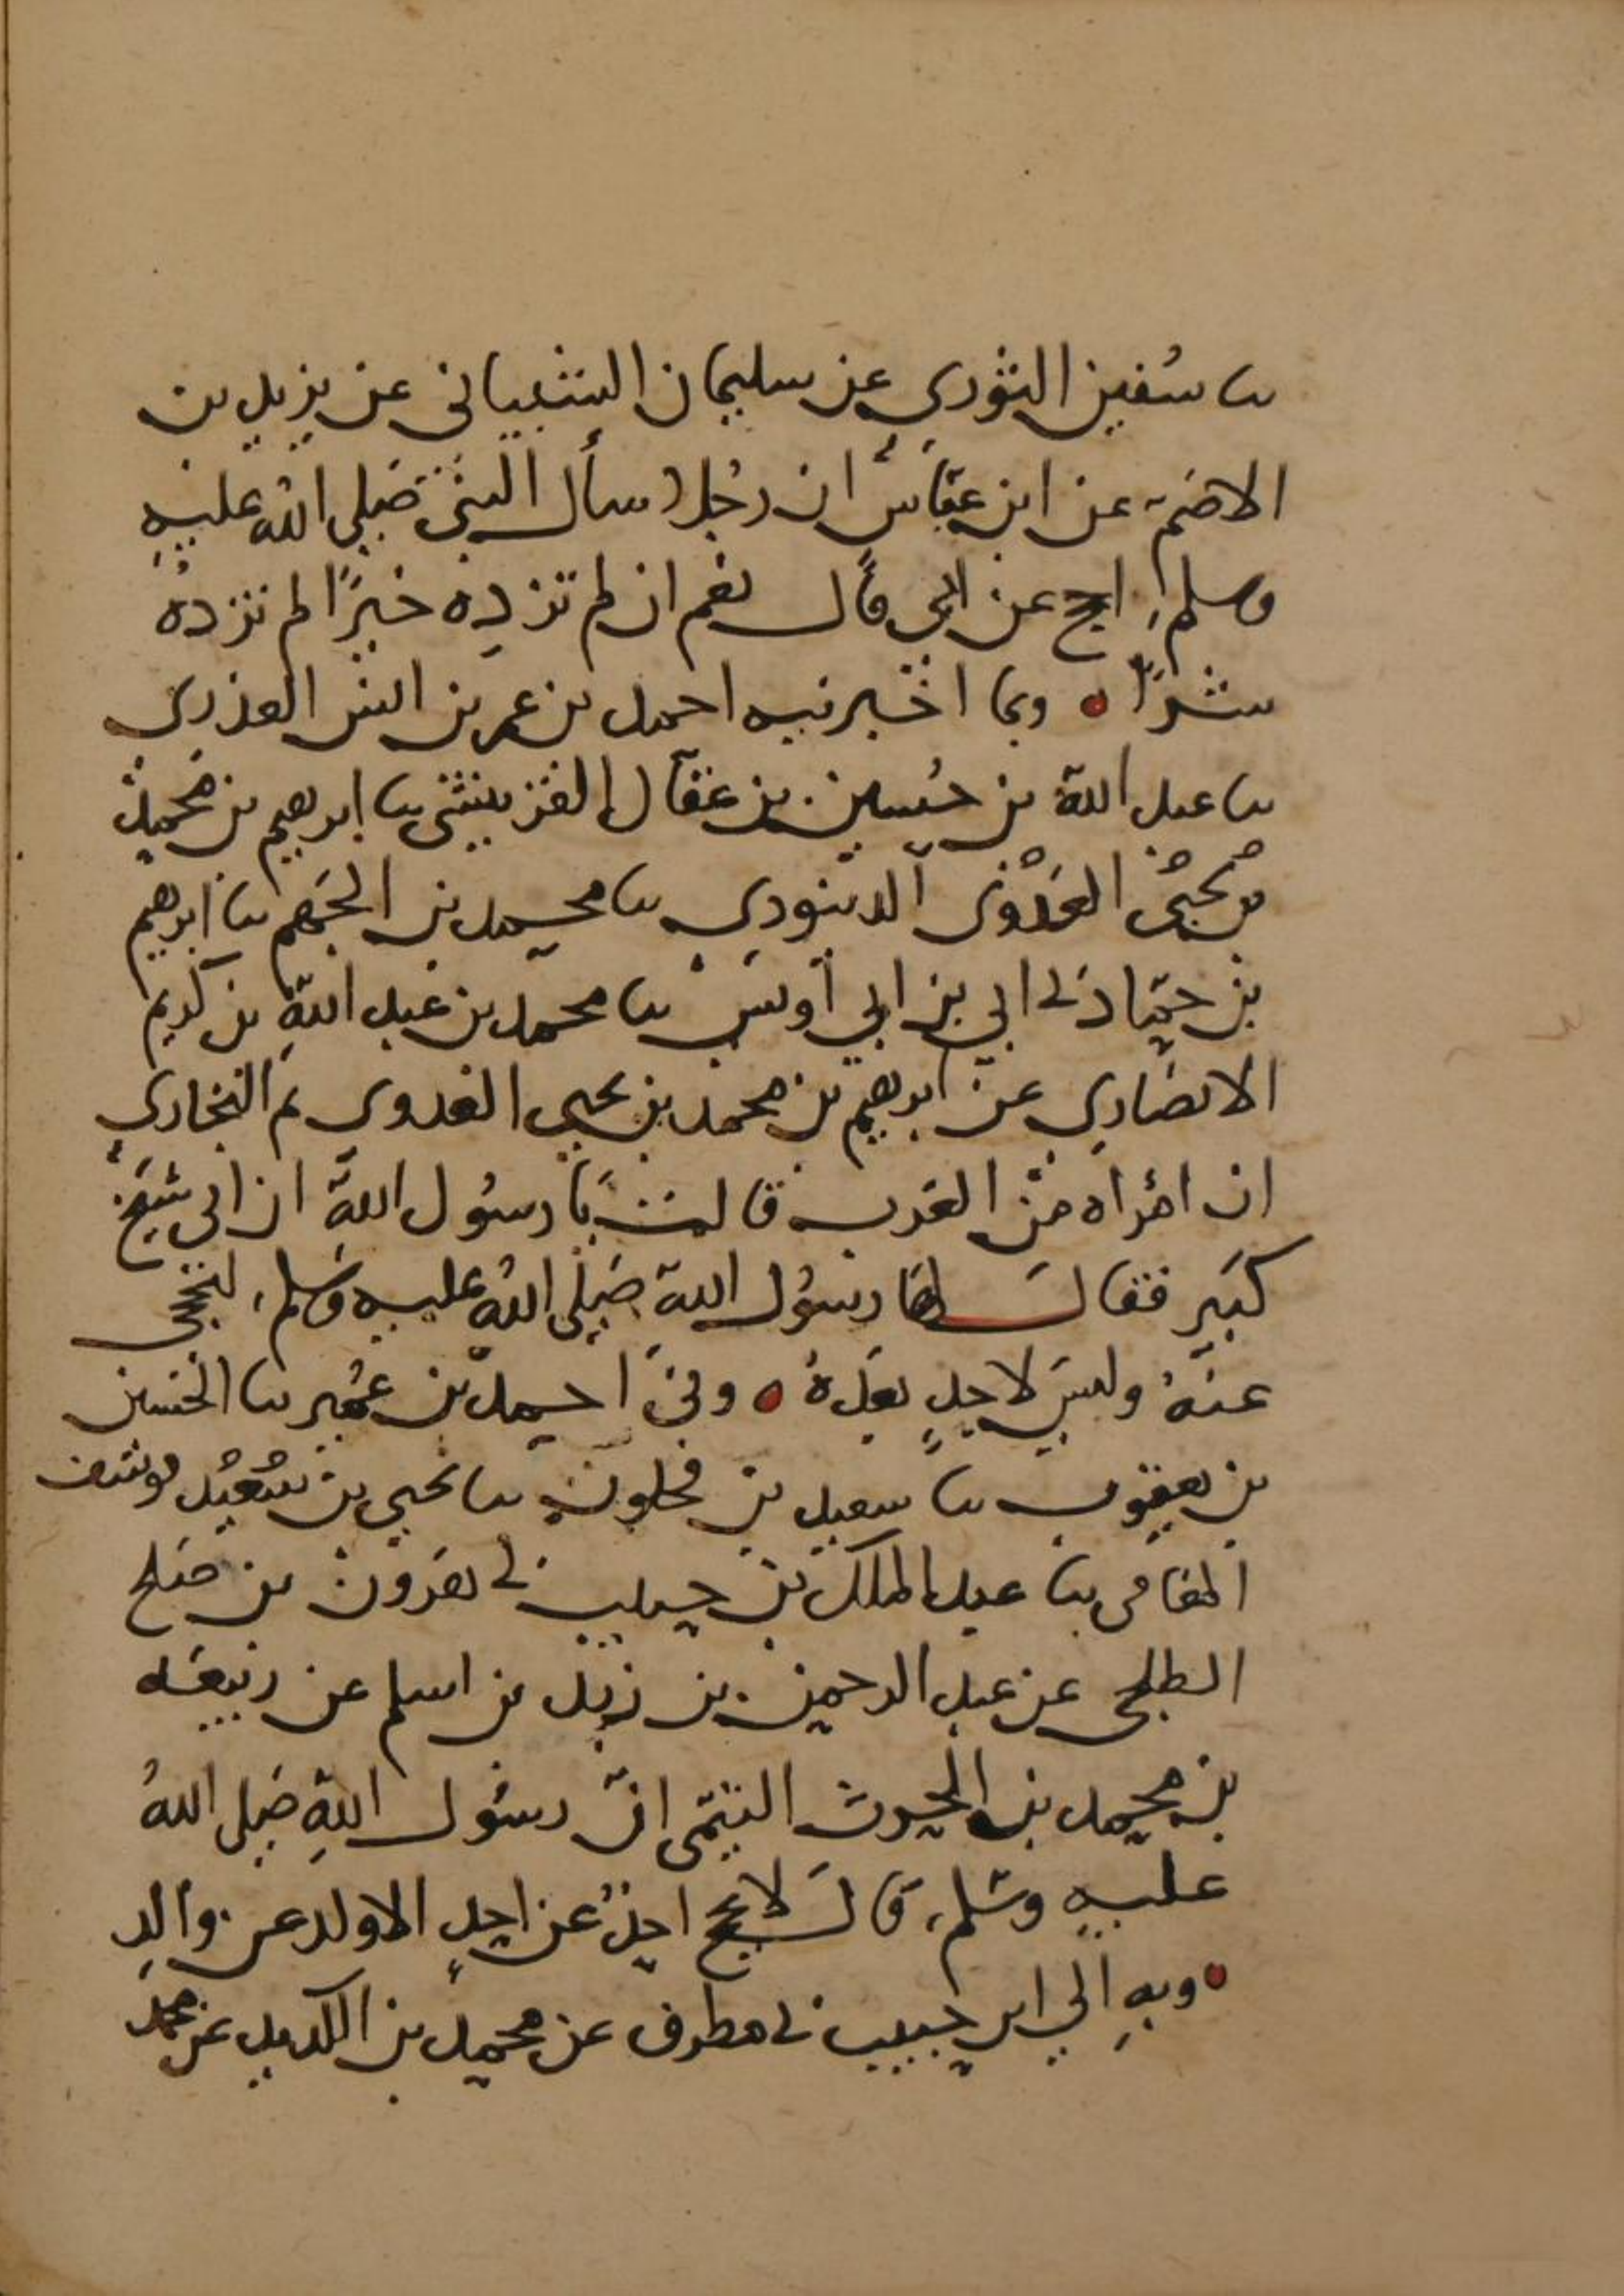 نا سفين الثوري عن سليمان الشيباني عن يزيد بن
الاصم عن ابن عباس ان رجلا سأل النبي صلى الله عليه
وسلم احج عن ابي قال نعم ان لم تزده خيرًا لم تزده
شرًا ● وبما اخبرنيه احمد بن عمر بن انس العذري
نا عبد الله بن حسين بن عقال القرينشي نا ابرهيم بن محمد
العدوي الدينوري نا محمد بن الجهم نا ابرهيم
بن حماد ني ابي بن ابي أويس نا محمد بن عبد الله بن كريم
الانصاري عن ابرهيم بن محمد بن يحيى العدوي ثم النجاري
ان امراه من العرب قالت يا رسول الله ان ابي شيخ
كبير فقال لها رسول الله صلى الله عليه وسلم لتحجي
عنه وليس لاحدٍ بعده ● وني احمد بن عمر نا الحسين
بن يعقوب نا سعيد بن فحلون نا يحيى بن يوسف
المغامي نا عبد الملك بن حبيب ني هرون بن صلح
الطلحي عن عبد الرحمن بن زيد بن اسلم عن ربيعه
بن محمد بن الحرث التيمي انّ رسول الله صلى اللهُ
عليه وسلم قال لا يحج احدٌ عن احدٍ الا ولد عن والدِ
● وبهِ الي ابن حبيب ني مطرف عن محمد بن الكدير عن محمد